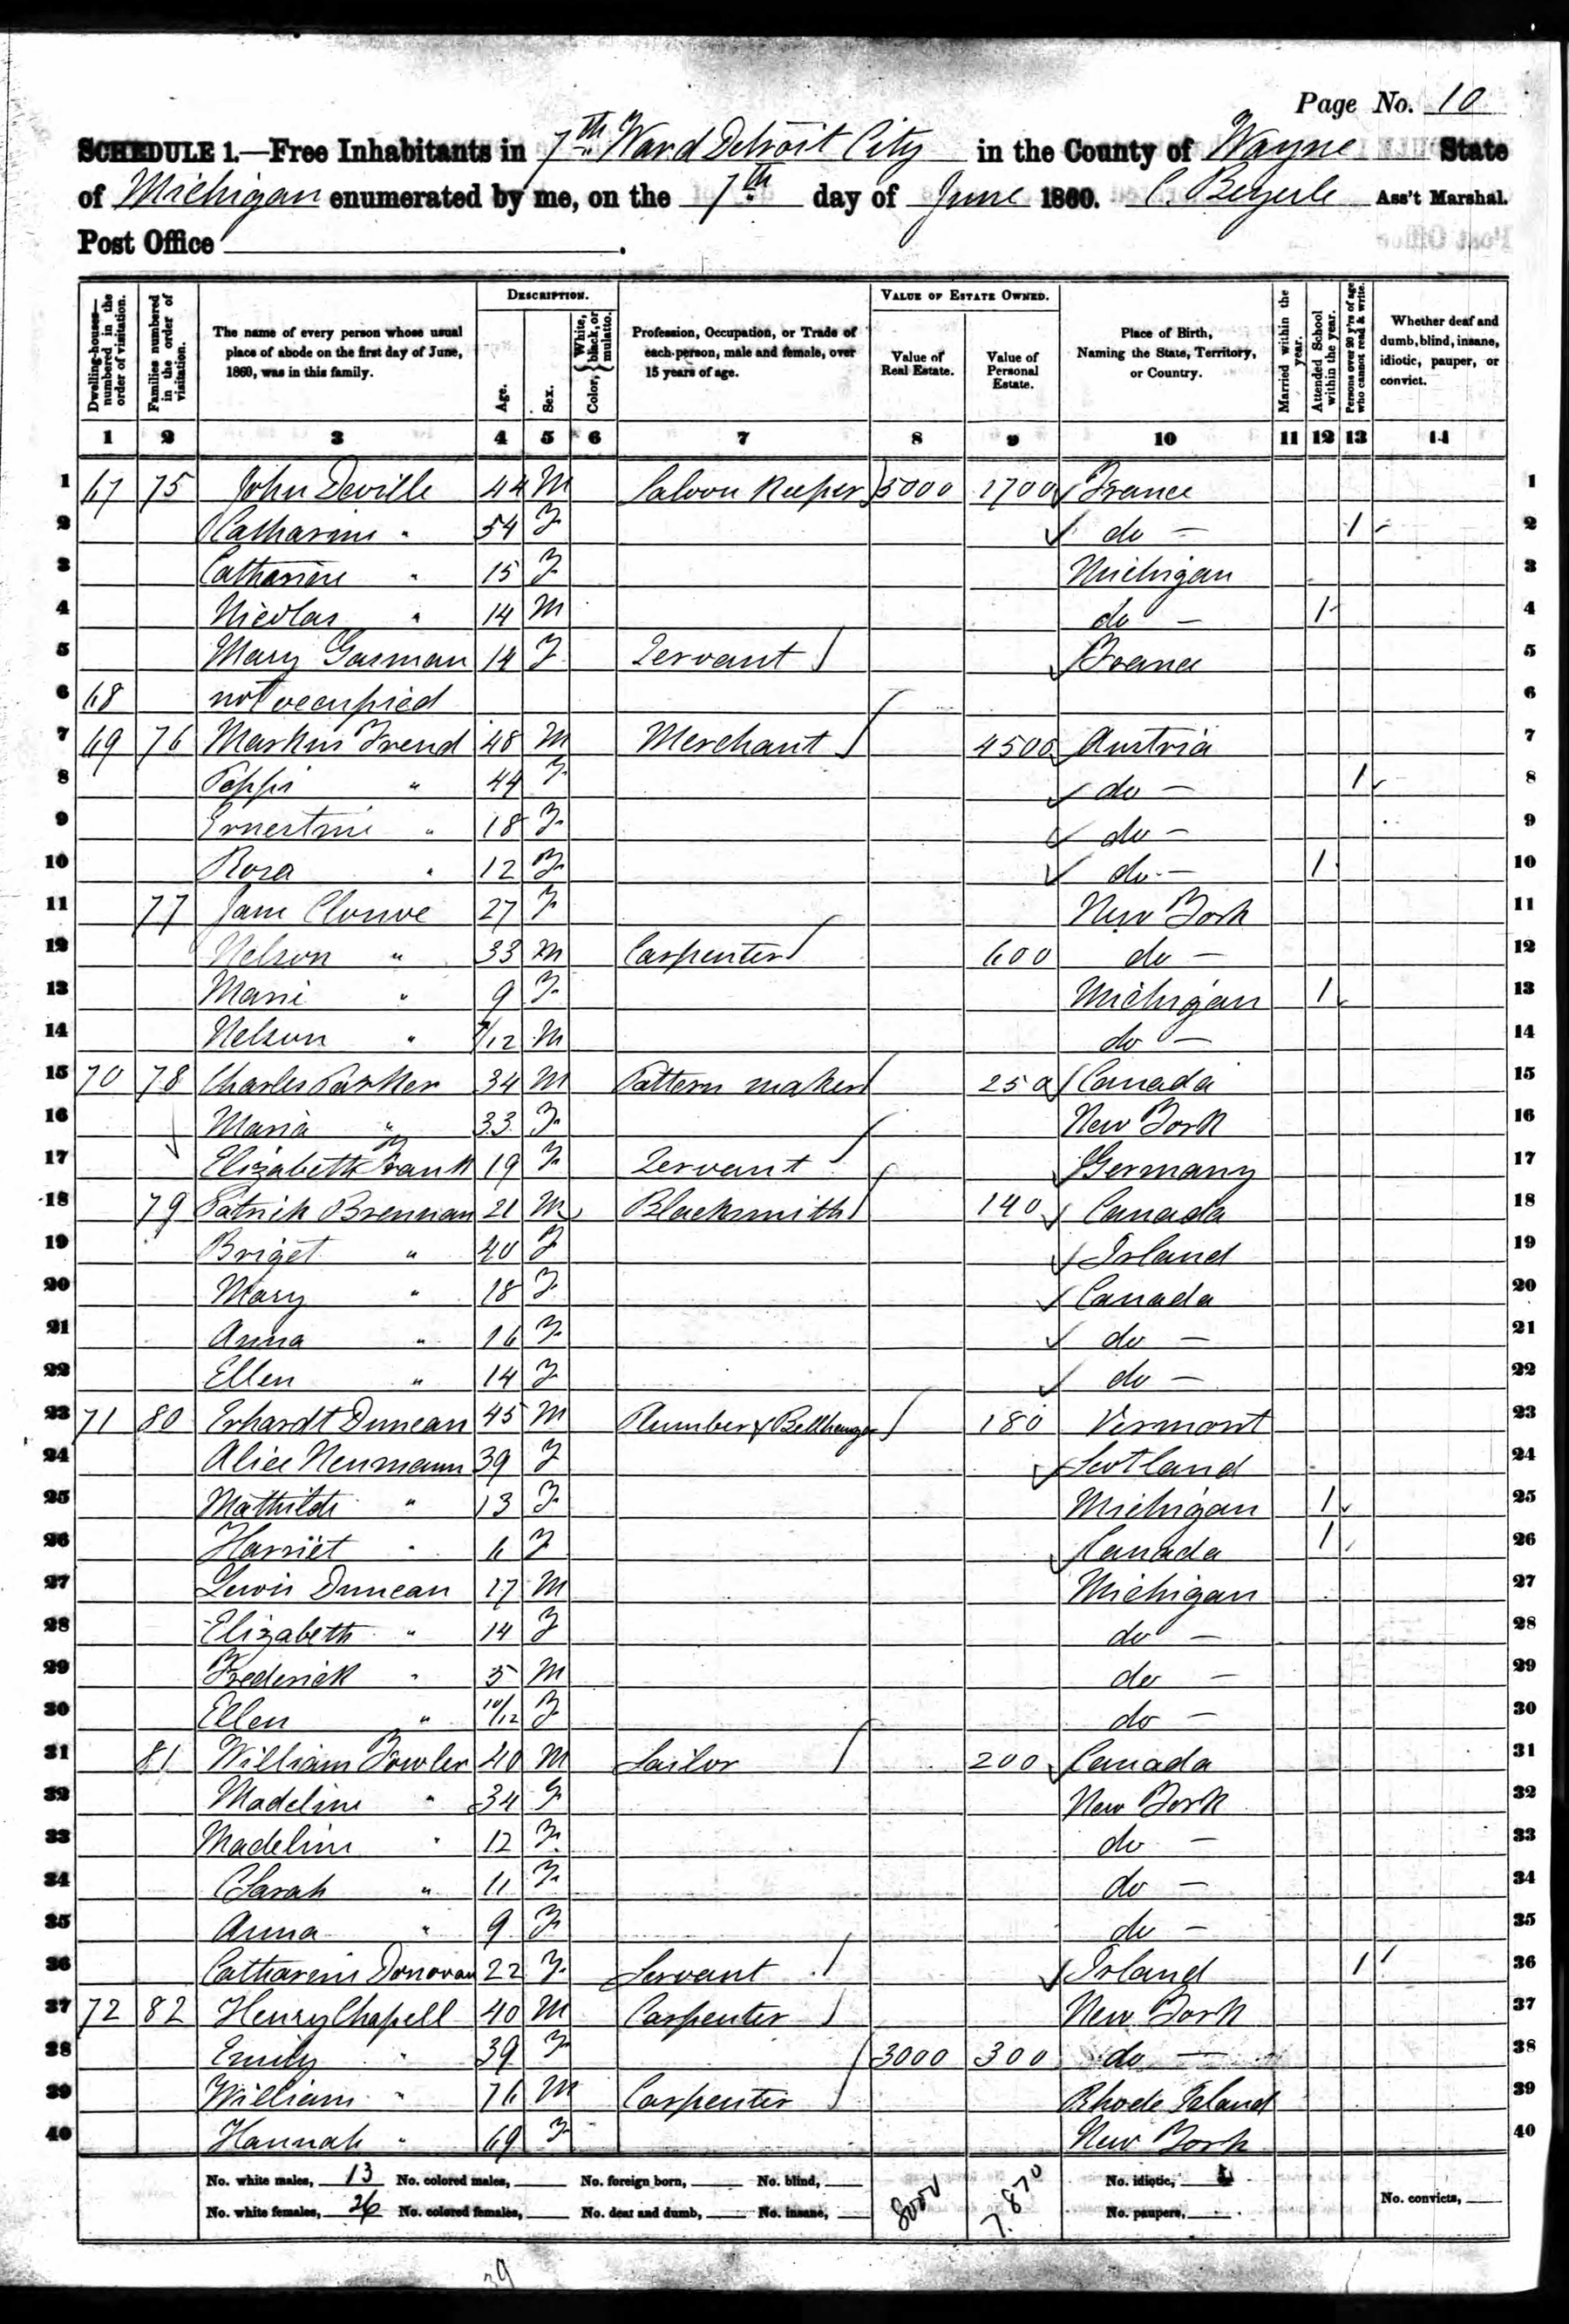 Page No. 10
SCHEDULE 1.—Free Inhabitants in 7th Ward Detroit City in the County of Wayne State
of Michigan enumerated by me, on the 7th day of June 1860. C. Beyerle Ass't Marshal.
Post Office .
Dwelling-houses—numbered in the order of visitation.
Families numbered in the order of visitation.
The name of every person whose usual place of abode on the first day of June, 1860, was in this family.
DESCRIPTION.
Age.
Sex.
Color, White, black, or mulatto.
Profession, Occupation, or Trade of each person, male and female, over 15 years of age.
VALUE OF ESTATE OWNED.
Value of Real Estate.
Value of Personal Estate.
Place of Birth, Naming the State, Territory, or Country.
Married within the year.
Attended School within the year.
Persons over 20 y'rs of age who cannot read & write.
Whether deaf and dumb, blind, insane, idiotic, pauper, or convict.
1 2 3 4 5 6 7 8 9 10 11 12 13 14
1 67 75 John Deville 44 M Saloon Keeper 5000 1700 France 1
2 Catharine " 54 F do — 1 2
3 Catharine " 15 F Michigan 3
4 Nicolas " 14 M do — 1 4
5 Mary Gasman 14 F Servant France 5
6 68 not occupied 6
7 69 76 Markus Frend 48 M Merchant 4500 Austria 7
8 Peppi " 44 F do — 1 8
9 Ernestine " 18 F do — 9
10 Rosa " 12 F do — 1 10
11 77 Jane Clouve 27 F New York 11
12 Nelson " 33 M Carpenter 600 do — 12
13 Marie " 9 F Michigan 1 13
14 Nelson " /12 M do — 14
15 70 78 Charles Parker 34 M Pattern maker 250 Canada 15
16 Maria " 33 F New York 16
17 Elizabeth Frank 19 F Servant Germany 17
18 79 Patrick Brennan 21 M Blacksmith 140 Canada 18
19 Briget " 40 F Irland 19
20 Mary " 18 F Canada 20
21 Anna " 16 F do — 21
22 Ellen " 14 F do — 22
23 71 80 Erhardt Duncan 45 M Plumber & Bellhanger 180 Vermont 23
24 Alice Neumann 39 F Scotland 24
25 Mathilde " 13 F Michigan 1 25
26 Harriet " 6 F Canada 1 26
27 Lewis Duncan 17 M Michigan 27
28 Elizabeth " 14 F do — 28
29 Frederick " 5 M do — 29
30 Ellen " 10/12 F do — 30
31 81 William Fowler 40 M Sailor 200 Canada 31
32 Madeline " 34 F New York 32
33 Madeline " 12 F do — 33
34 Sarah " 11 F do — 34
35 Anna " 9 F do — 35
36 Catharine Donovan 22 F Servant Irland 1 36
37 72 82 Henry Chapell 40 M Carpenter New York 37
38 Emily " 39 F 3000 300 do — 38
39 William " 76 M Carpenter Rhode Island 39
40 Hannah " 69 F New York 40
No. white males, 13 No. colored males, No. foreign born, No. blind, 8000 7.870 No. idiotic,
No. white females, 26 No. colored females, No. deaf and dumb, No. insane, No. paupers, No. convicts,
39